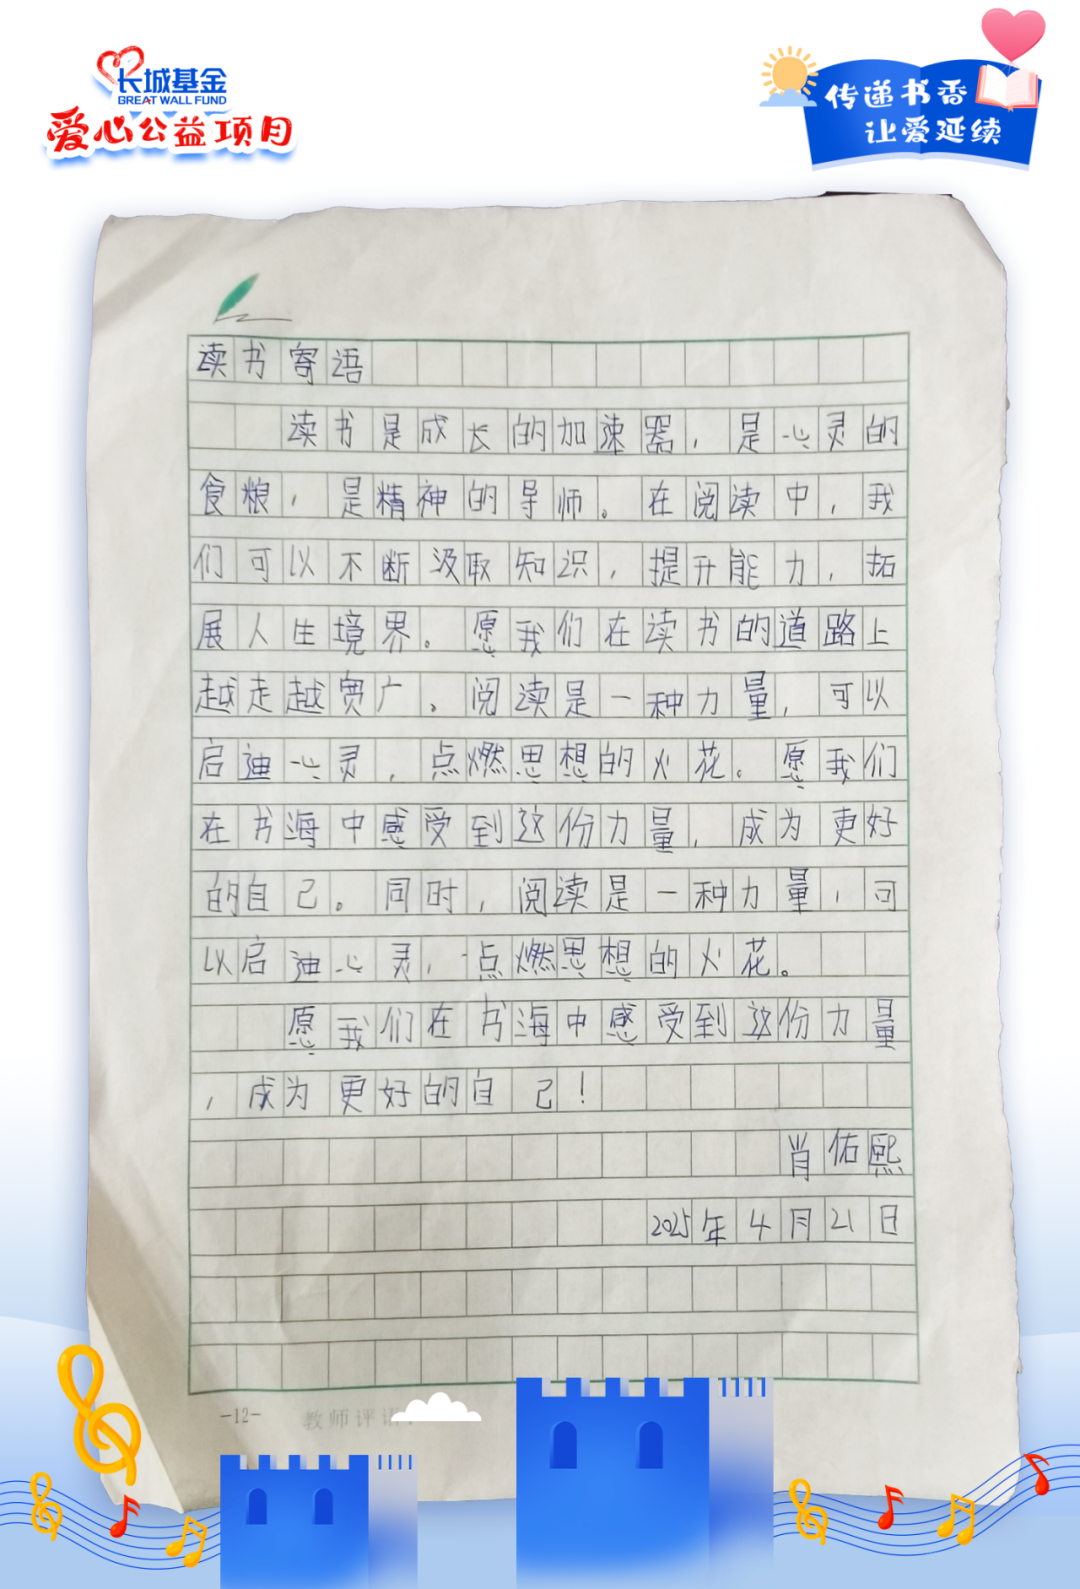 长城基金
GREAT WALL FUND
爱心公益项目
传递书香
让爱延续
读书寄语
读书是成长的加速器，是心灵的
食粮，是精神的导师。在阅读中，我
们可以不断汲取知识，提升能力，拓
展人生境界。愿我们在读书的道路上
越走越宽广。阅读是一种力量，可以
启迪心灵，点燃思想的火花。愿我们
在书海中感受到这份力量，成为更好
的自己。同时，阅读是一种力量，可
以启迪心灵，点燃思想的火花。
愿我们在书海中感受到这份力量
，成为更好的自己！
肖佑熙
2025年4月21日
-12-
教师评语：